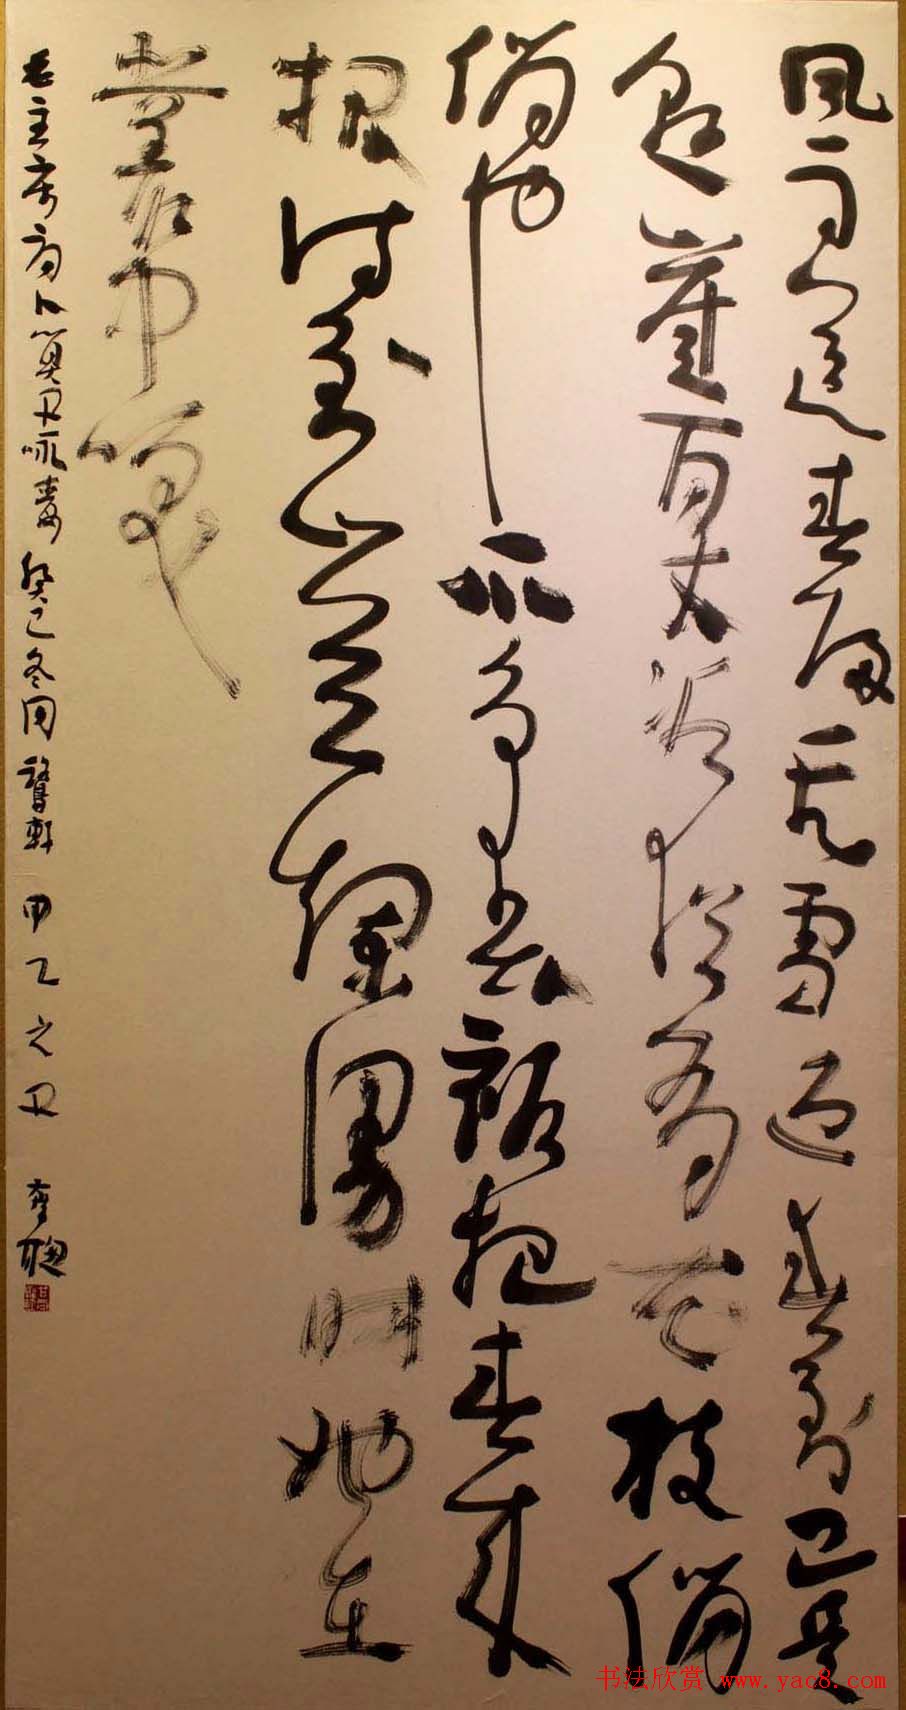 風雨送春歸飛雪迎春到已是
懸崖百丈冰猶有花枝俏
俏也不爭春祇把春來
報待到山花爛漫時她在
叢中笑
毛主席詞卜算子咏梅 癸巳冬 軒 甲乙之 聰
书法欣赏 www.yac8.com